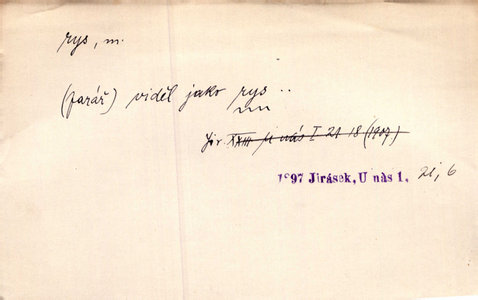 rys, m.
(farář) viděl jako rys ..
Jir. XXIII U nás I 21 18 (1907)
1897 Jirásek, U nás 1. 21, 6